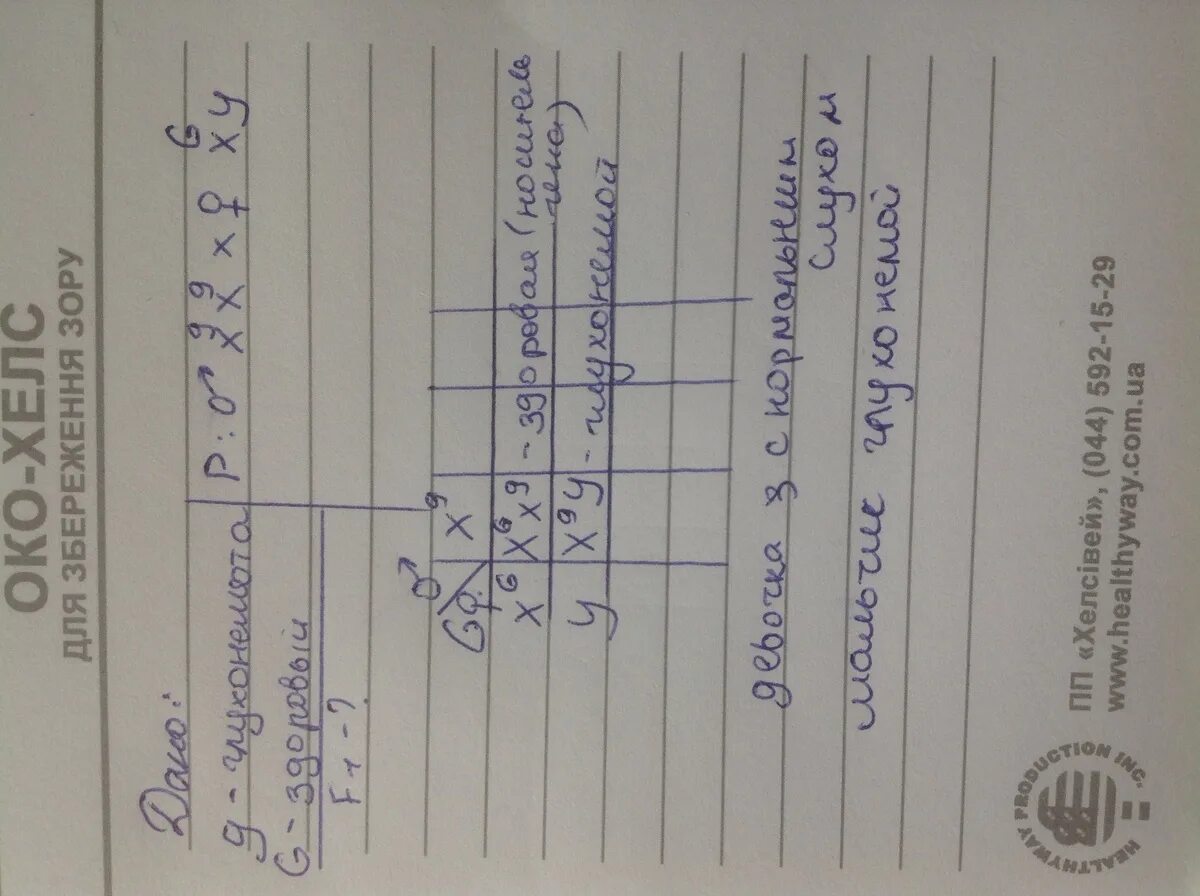 ОКО-ХЕЛС
ДЛЯ ЗБЕРЕЖЕННЯ ЗОРУ
Дано:
g - глухонемота
G - здоровый
F₁ - ?
P: ♂ XᵍXᵍ x ♀ XᴳY
♂
G ♀ Xᵍ
Xᴳ XᴳXᵍ - здоровая (носитель
гена)
Y XᵍY - глухонемой
девочка з с нормальным
слухом
мальчик глухонемой
HEALTHYWAY PRODUCTION INC.
ПП «Хелсівей», (044) 592-15-29
www.healthyway.com.ua